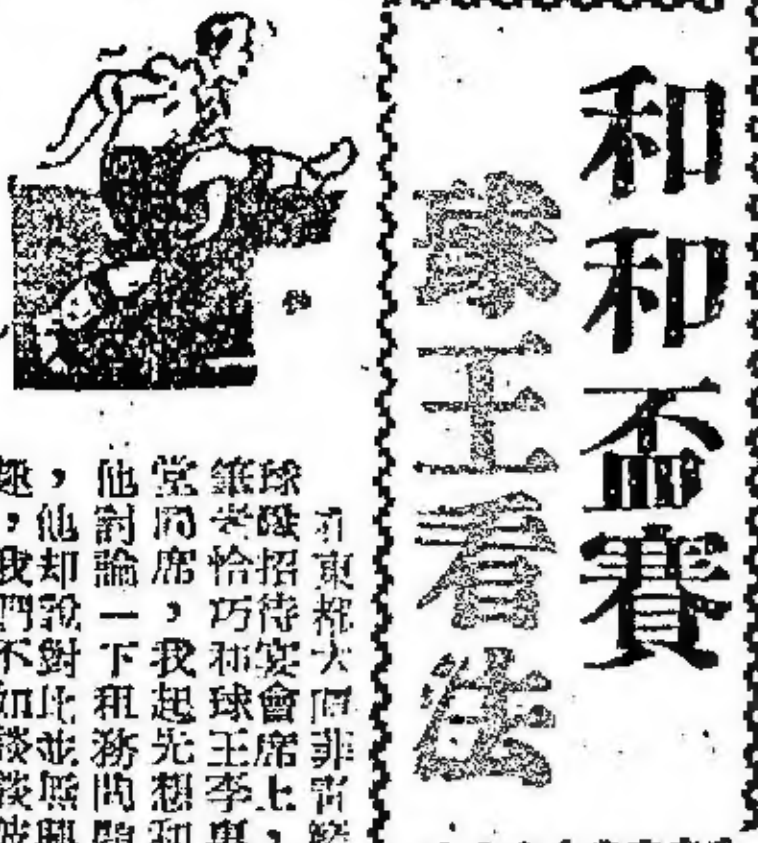 和和盃賽
球王看法
東大菲
球隊招待宴會席上，
恰巧和球王李惠
堂同席，我起先想和
他討論一下租務問題
，他却說對此並無興
趣，我們不如談談